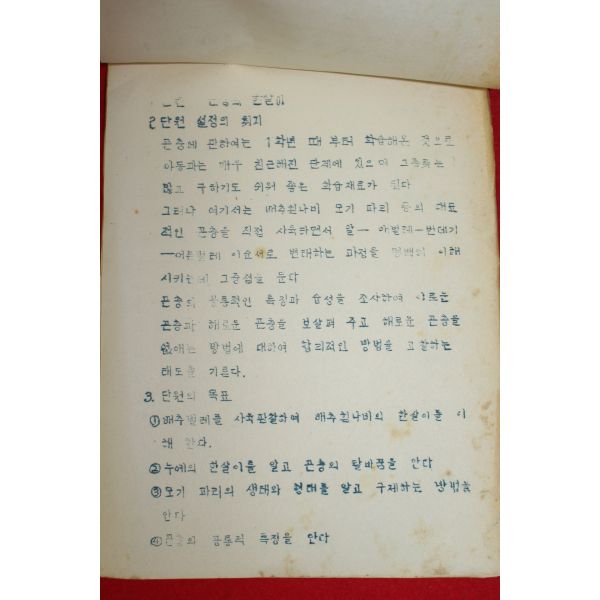 한살이
2 단원 설정의 취지
곤충에 관하여는 1학년 때 부터 학습해온 것으로
아동과는 매우 친근해진 단계에 있으며 그 종류는
많고 구하기도 쉬워 좋은 학습재료가 된다
그러나 여기서는 배추흰나비 모기 파리 등의 대표
적인 곤충을 직접 사육하면서 알 — 아벌레 — 번데기
— 어른벌레 이순서로 변태하는 과정을 명백히 이해
시키는데 그중점을 둔다
곤충의 공통적인 특징과 습성을 조사하여 이로운
곤충과 해로운 곤충을 보살펴 주고 해로운 곤충을
없애는 방법에 대하여 합리적인 방법을 고찰하는
태도를 기른다.
3. 단원의 목표
①배추벌레를 사육관찰하여 배추흰나비의 한살이를 이
해 한다.
②누에의 한살이를 알고 곤충의 탈바꿈을 안다
③모기 파리의 생태와 형태를 알고 구제하는 방법을
안다
④곤충의 공통적 특징을 안다